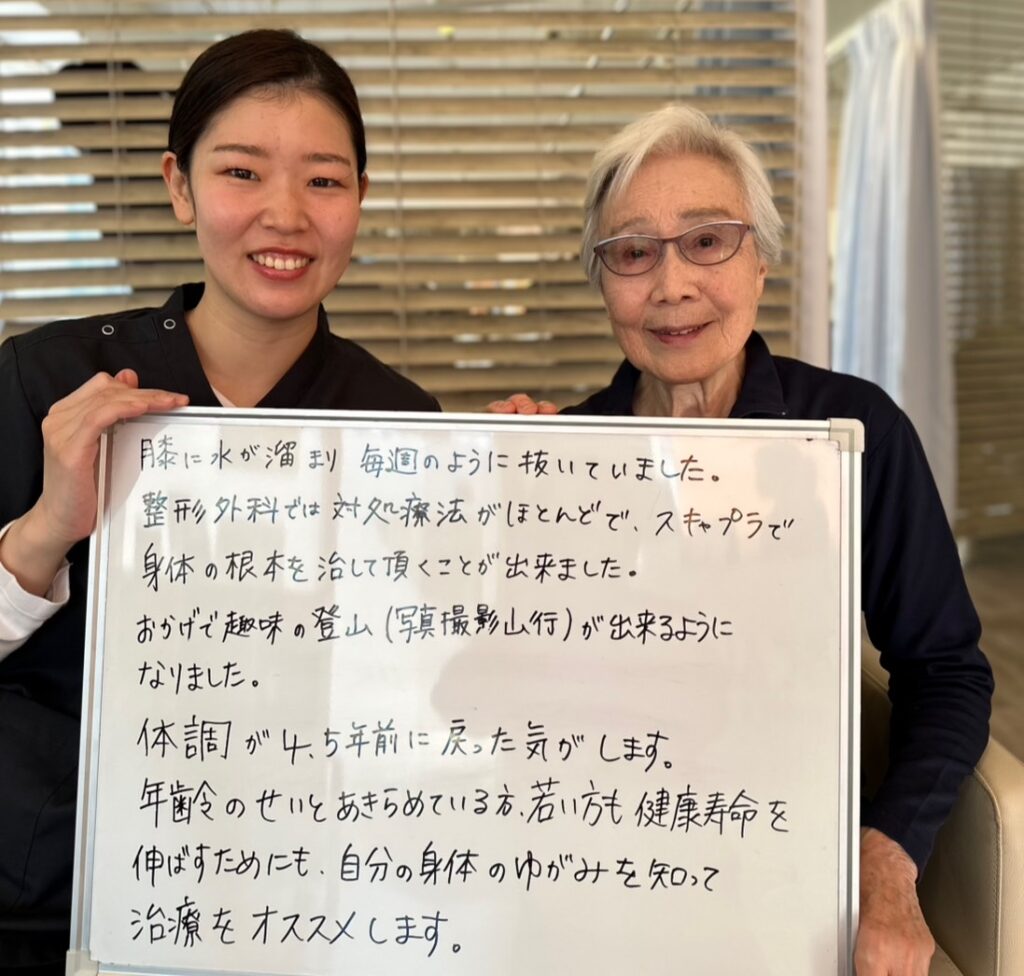 膝に水が溜まり 毎週のように抜いていました。
整形外科では対処療法がほとんどで、スキャプラで
身体の根本を治して頂くことが出来ました。
おかげで趣味の登山(写真撮影山行)が出来るように
なりました。
体調が4、5年前に戻った気がします。
年齢のせいとあきらめている方、若い方も健康寿命を
伸ばすためにも、自分の身体のゆがみを知って
治療をオススメします。